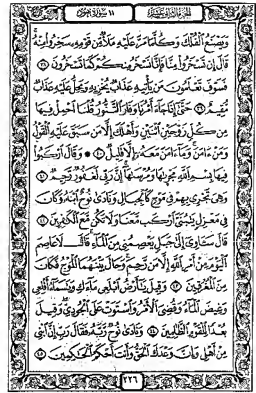 الجزء الثاني عشر ١١ سورة هود
وَيَصْنَعُ ٱلْفُلْكَ وَكُلَّمَا مَرَّ عَلَيْهِ مَلَأٌ مِّن قَوْمِهِۦ سَخِرُوا۟ مِنْهُ
قَالَ إِن تَسْخَرُوا۟ مِنَّا فَإِنَّا نَسْخَرُ مِنكُمْ كَمَا تَسْخَرُونَ ٣٨
فَسَوْفَ تَعْلَمُونَ مَن يَأْتِيهِ عَذَابٌ يُخْزِيهِ وَيَحِلُّ عَلَيْهِ عَذَابٌ
مُّقِيمٌ ٣٩ حَتَّىٰٓ إِذَا جَآءَ أَمْرُنَا وَفَارَ ٱلتَّنُّورُ قُلْنَا ٱحْمِلْ فِيهَا
مِن كُلٍّ زَوْجَيْنِ ٱثْنَيْنِ وَأَهْلَكَ إِلَّا مَن سَبَقَ عَلَيْهِ ٱلْقَوْلُ
وَمَنْ ءَامَنَ وَمَآ ءَامَنَ مَعَهُۥٓ إِلَّا قَلِيلٌ ٤٠ ۞ وَقَالَ ٱرْكَبُوا۟
فِيهَا بِسْمِ ٱللَّهِ مَجْر۪ىٰهَا وَمُرْسَىٰهَآ إِنَّ رَبِّى لَغَفُورٌ رَّحِيمٌ ٤١
وَهِىَ تَجْرِى بِهِمْ فِى مَوْجٍ كَٱلْجِبَالِ وَنَادَىٰ نُوحٌ ٱبْنَهُۥ وَكَانَ
فِى مَعْزِلٍ يَـٰبُنَىَّ ٱرْكَب مَّعَنَا وَلَا تَكُن مَّعَ ٱلْكَـٰفِرِينَ ٤٢
قَالَ سَـَٔاوِىٓ إِلَىٰ جَبَلٍ يَعْصِمُنِى مِنَ ٱلْمَآءِ قَالَ لَا عَاصِمَ
ٱلْيَوْمَ مِنْ أَمْرِ ٱللَّهِ إِلَّا مَن رَّحِمَ وَحَالَ بَيْنَهُمَا ٱلْمَوْجُ فَكَانَ
مِنَ ٱلْمُغْرَقِينَ ٤٣ وَقِيلَ يَـٰٓأَرْضُ ٱبْلَعِى مَآءَكِ وَيَـٰسَمَآءُ أَقْلِعِى
وَغِيضَ ٱلْمَآءُ وَقُضِىَ ٱلْأَمْرُ وَٱسْتَوَتْ عَلَى ٱلْجُودِىِّ وَقِيلَ
بُعْدًا لِّلْقَوْمِ ٱلظَّـٰلِمِينَ ٤٤ وَنَادَىٰ نُوحٌ رَّبَّهُۥ فَقَالَ رَبِّ إِنَّ ٱبْنِى
مِنْ أَهْلِى وَإِنَّ وَعْدَكَ ٱلْحَقُّ وَأَنتَ أَحْكَمُ ٱلْحَـٰكِمِينَ ٤٥
٢٢٦